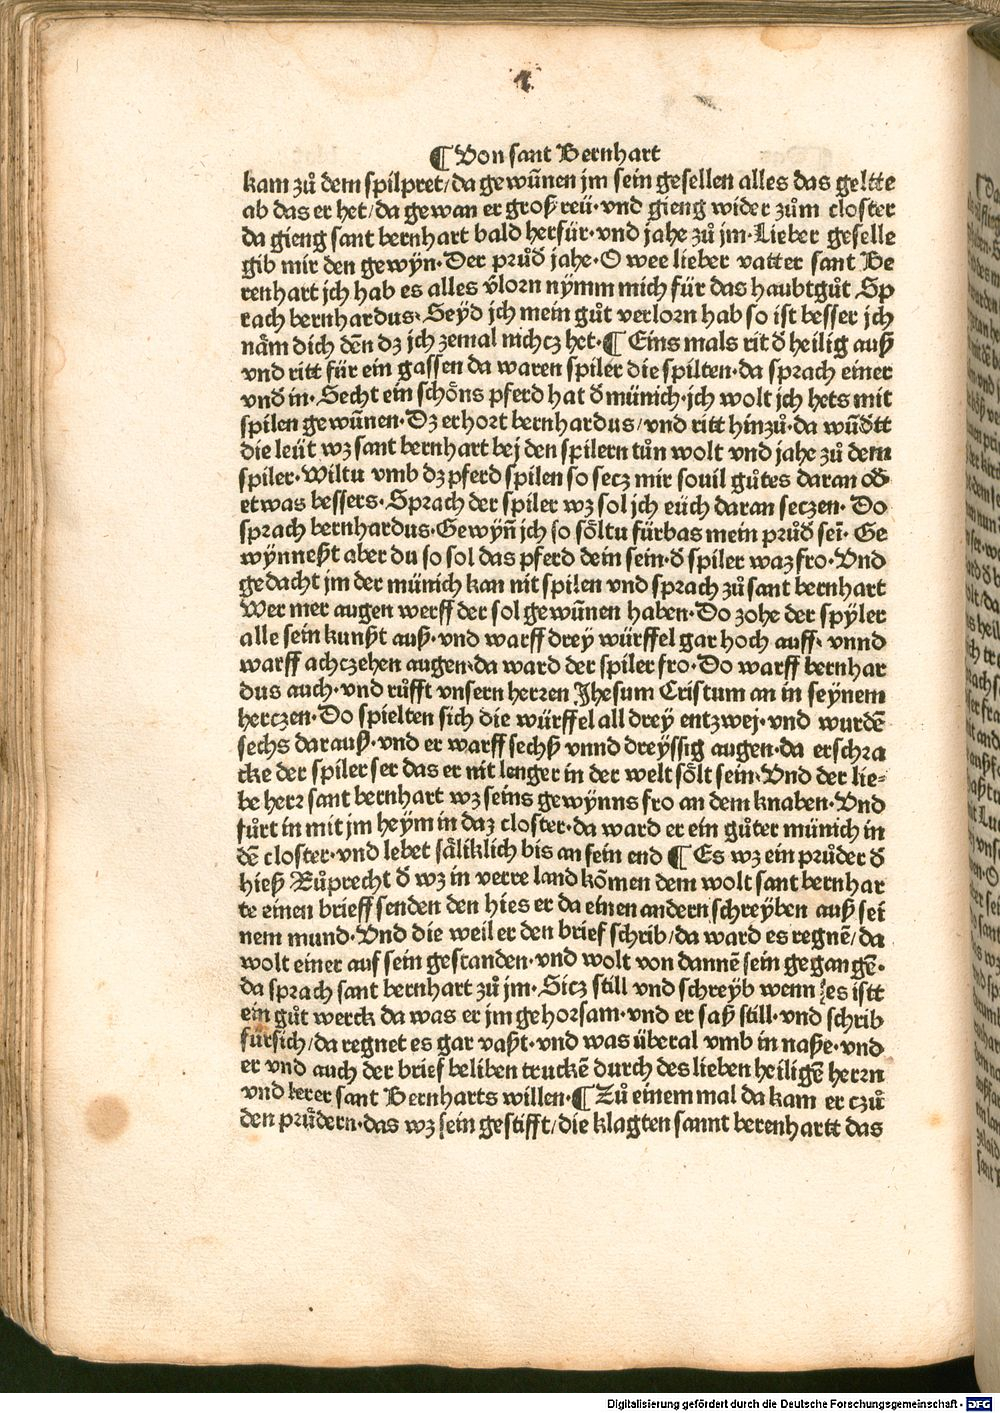 ¶ Von sant Bernhart
kam zů dem spilpret/da gewũnen jm sein gesellen alles das geltte
ab das er het/da gewan er groß reü·vnd gieng wider zům closter
da gieng sant bernhart bald herfür·vnd jahe zů jm·Lieber geselle
gib mir den gewÿn·Der průd̕ jahe·O wee lieber vatter sant Be
renhart jch hab es alles v̕lorn nÿmm mich für das haubtgůt Sp
rach bernhardus·Seÿd jch mein gůt verlorn hab so ist besser jch
näm dich dẽn dz jch zemal nichcz het·¶ Eins mals rit d̕ heilig auß
vnd ritt für ein gassen da waren spiler die spilten·da sprach einer
vnd̕ in·Secht ein schöns pferd hat d̕ münich·jch wolt jch hets mit
spilen gewũnen·Dz erhort bernhardus/vnd ritt hinzů·da wũd̕tt
die leüt wz sant bernhart bej den spilern tůn wolt vnd jahe zů dem
spiler·Wiltu vmb dz pferd spilen so secz mir souil gůtes daran od̕
etwas bessers·Sprach der spiler wz sol jch eüch daran seczen· Do
sprach bernhardus·Gewÿñ jch so söltu fürbas mein průd̕ sei· Ge
wÿnneßt aber du so sol das pferd dein sein·d̕ spiler waz fro·Vnd
gedacht jm der münich kan nit spilen vnd sprach zů sant bernhart
Wer mer augen werff der sol gewũnen haben·Do zohe der spÿler
alle sein kunßt auß·vnd warff drey würffel gar hoch auff· vnnd
warff achczehen augen·da ward der spiler fro·Do warff bernhar
dus auch·vnd růfft vnsern herren Jhesum Cristum an in seÿnem
herczen·Do spielten sich die würffel all drey entzwej·vnd wurdẽ
sechs darauß·vnd er warff sechß vnnd dreÿssig augen·da erschra
cke der spiler ser das er nit lenger in der welt sölt sein·Vnd der lie-
be herr sant bernhart wz seins gewÿnns fro an dem knaben·Vnd
fůrt in mit jm heÿm in daz closter·da ward er ein gůter münich in
dẽ closter·vnd lebet säliklich bis an sein end ¶ Es wz ein průder d̕
hieß Růprecht d̕ wz in verre land kõmen dem wolt sant bernhar
te einen brieff senden den hies er da einen andern schreÿben auß sei
nem mund·Vnd die weil er den brief schrib/da ward es regnẽ/da
wolt einer auf sein gestanden·vnd wolt von dannẽ sein gegangẽ·
da sprach sant bernhart zů jm·Sicz still vnd schreÿb wenn es istt
ein gůt werck da was er jm gehorsam·vnd er saß still·vnd schrib
fürsich/da regnet es gar vaßt·vnd was überal vmb in naße·vnd
er vnd auch der brief beliben truckẽ durch des lieben heiligẽ herrn
vnd lerer sant Bernharts willen·¶ Zů einem mal da kam er czů
den průdern·das wz sein gestifft/die klagten sannt berenhartt das
Digitalisierung gefördert durch die Deutsche Forschungsgemeinschaft - DFG